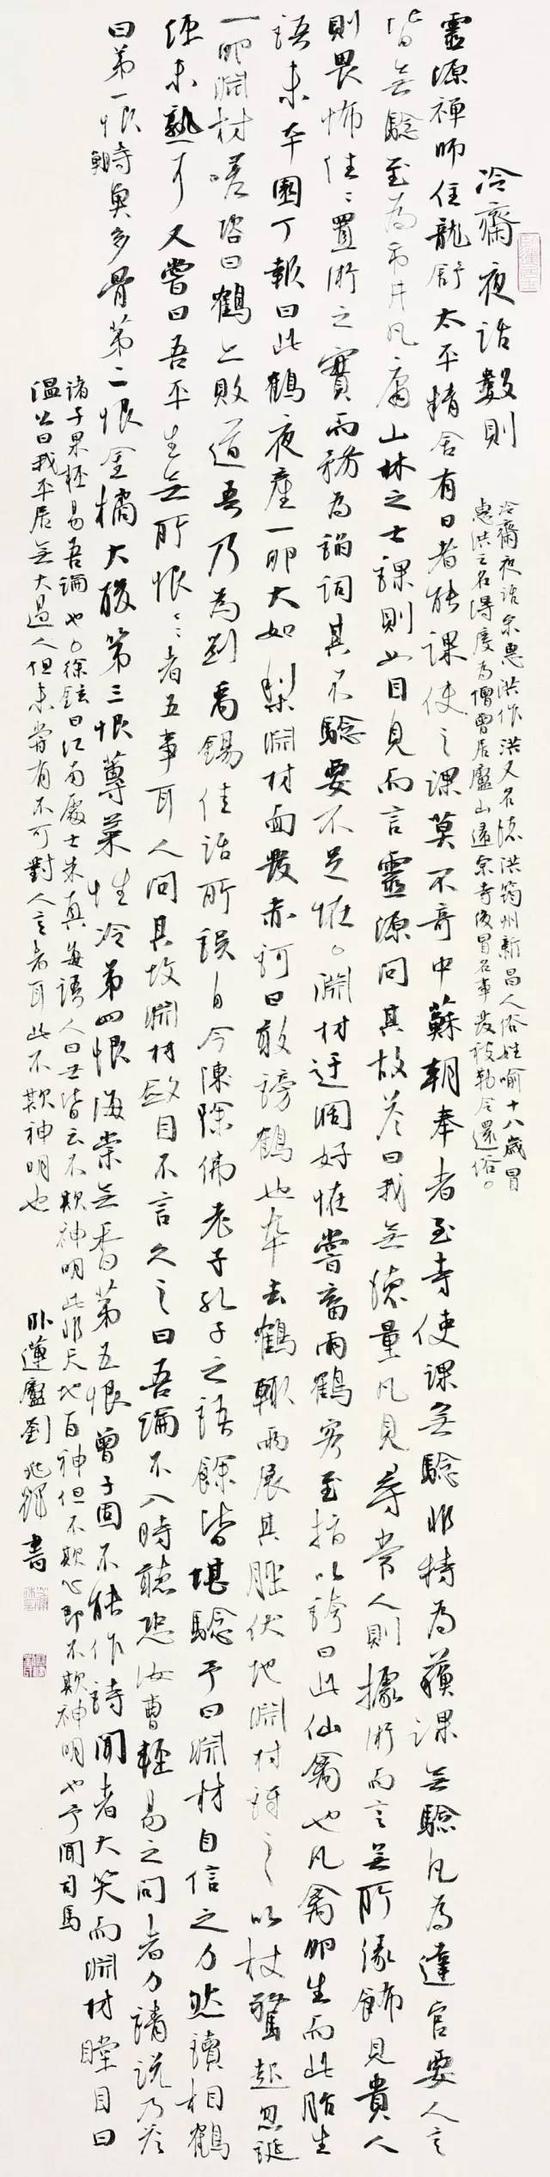 冷齋夜話數則
冷齋夜話宋惠洪作洪又名德洪筠州新昌人俗姓喻十八歲冒
惠洪之名得度為僧曾居廬山歸宗寺後冒名事發被勒令還俗。
靈源禪師住龍舒太平精舍有日者能課使之課莫不奇中蘇朝奉者至寺使課無驗非特為蘇課無驗凡為達官要人言
皆無驗至為市井凡庸山林之士課則如目見而言靈源問其故答曰我無德量凡見尋常人則據術而言無所緣飾見貴人
則畏怖往往置術之實而務為諂詞其不驗要不足怪。淵材迂闊好怪嘗畜兩鶴客至指以誇曰此仙禽也凡禽卵生而此胎生
語未卒園丁報曰此鶴夜產一卵大如梨淵材面發赤訶曰敢謗鶴也卒去鶴輒兩展其脛伏地淵材訝之以杖驚起忽誕
一卵淵材嗟咨曰鶴亦敗道吾乃為劉禹錫佳話所誤自今陳除佛老子孔子之語餘皆堪驗予曰淵材自信之力然讀相鶴
經未熟耳又嘗曰吾平生無所恨恨者五事耳人問其故淵材斂目不言久之曰吾論不入時聽恐汝曹輕易之問者力請說乃答
曰第一恨鰣魚多骨第二恨金橘大酸第三恨蓴菜性冷第四恨海棠無香第五恨曾子固不能作詩聞者大笑而淵材瞠目曰
諸子果輕易吾論也。徐鉉曰江南處士朱真每語人曰世皆云不欺神明此非天地百神但不欺心即不欺神明也予聞司馬
溫公曰我平居無大過人但未嘗有不可對人言者耳此不欺神明也
臥蓮廬劉兆輝書